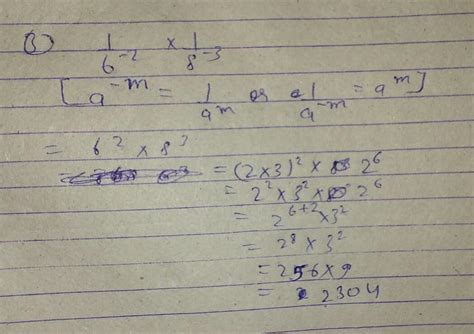 3) 1/6^-2 × 1/8^-3
[a^-m = 1/a^m or 1/a^-m = a^m]
= 6^2 × 8^3
= (2×3)^2 × 2^6
= 2^2 × 3^2 × 2^6
= 2^6+2 × 3^2
= 2^8 × 3^2
= 256 × 9
= 2304